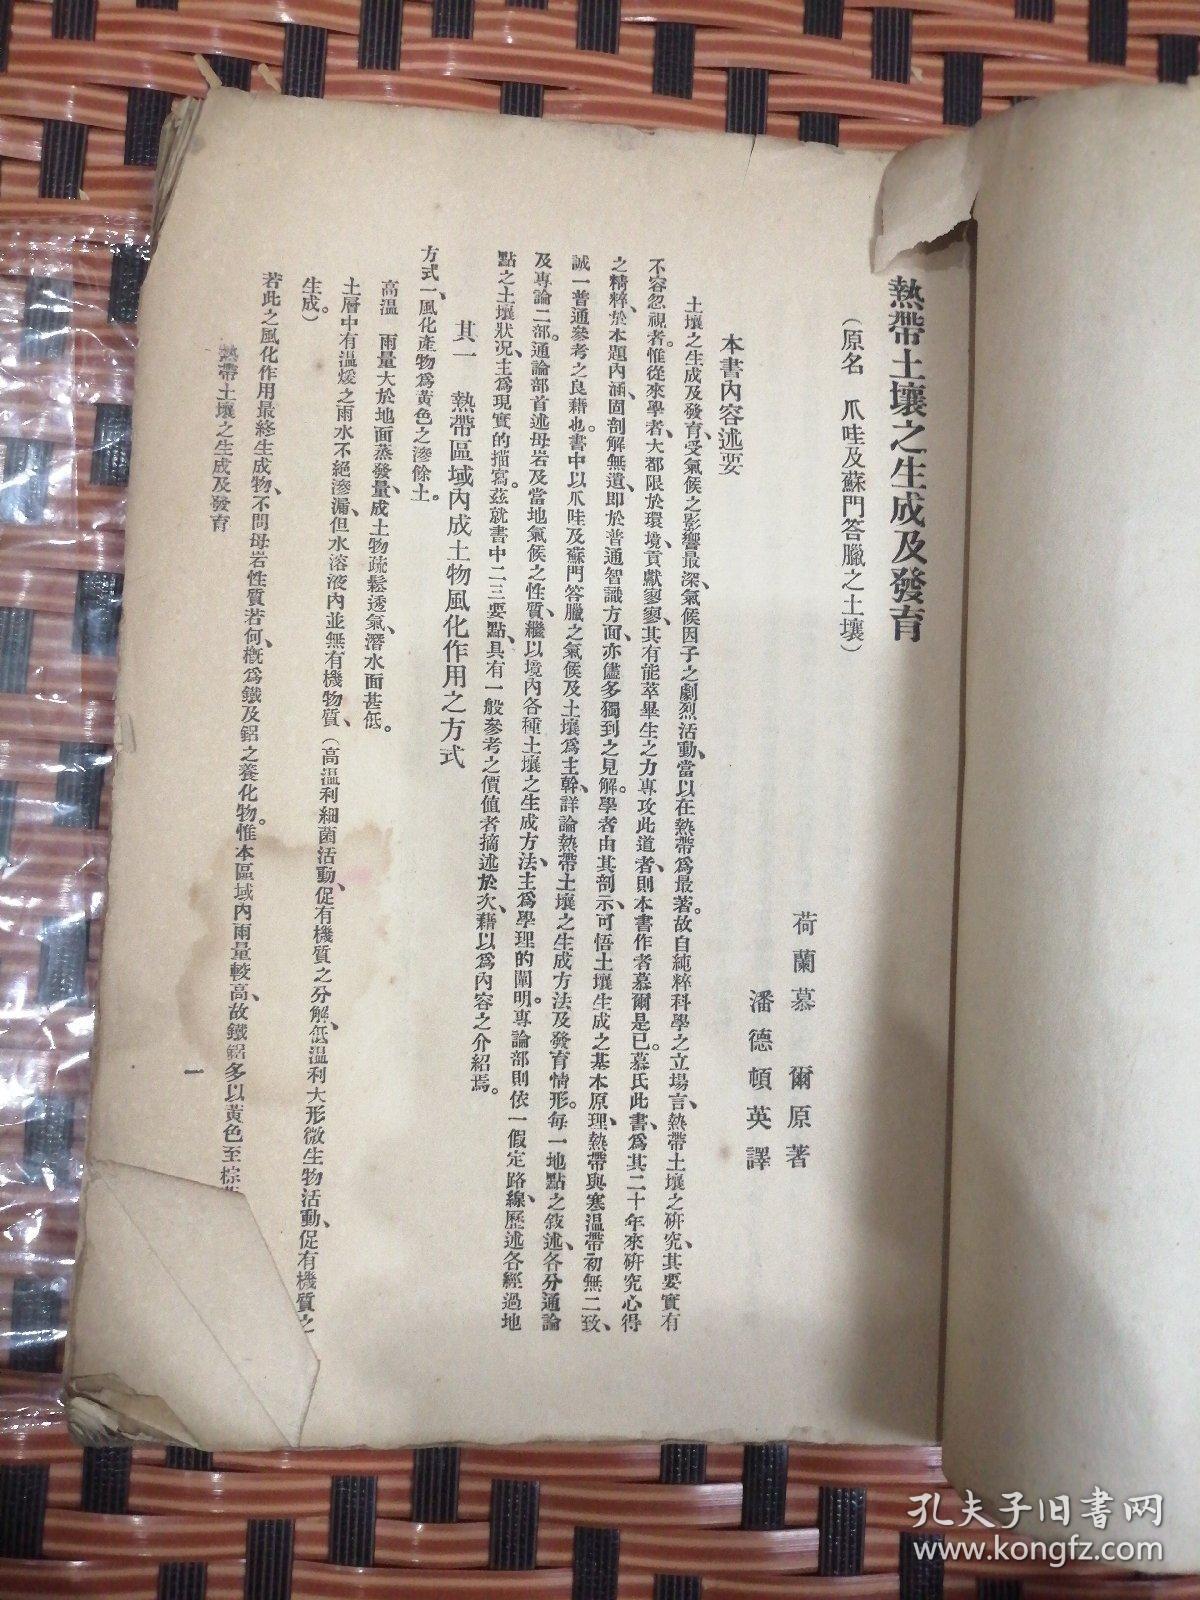 熱帶土壤之生成及發育
（原名　爪哇及蘇門答臘之土壤）
荷蘭慕　爾原著
潘德頓英譯
本書內容述要
土壤之生成及發育、受氣候之影響最深、氣候因子之劇烈活動、當以在熱帶爲最著。故自純粹科學之立場言、熱帶土壤之研究、其要實有
不容忽視者。惟從來學者、大都限於環境、貢獻寥寥、其有能萃畢生之力專攻此道者、則本書作者慕爾是已。慕氏此書、爲其二十年來研究心得
之精粹、於本題內涵、固剖解無遺、即於普通智識方面、亦儘多獨到之見解。學者由其剖示、可悟土壤生成之基本原理、熱帶與寒溫帶、初無二致、
誠一普通參考之良藉也。書中以爪哇及蘇門答臘之氣候及土壤爲主幹、詳論熱帶土壤之生成方法及發育情形。每一地點之敍述、各分通論
及專論二部。通論部首述母岩及當地氣候之性質、繼以境內各種土壤之生成方法、主爲學理的闡明。專論部則依一假定路線、歷述各經過地
點之土壤狀況、主爲現實的描寫。茲就書中二三要點、具有一般參考之價值者摘述於次、藉以爲內容之介紹焉。
其一　熱帶區域內成土物風化作用之方式
方式一、風化產物爲黃色之滲餘土。
高溫　雨量大於地面蒸發量、成土物疏鬆透氣、潛水面甚低。
土層中有溫煖之雨水不絕滲漏、但水溶液內並無有機物質、（高溫利細菌活動、促有機質之分解、低溫利大形微生物活動、促有機質之
生成）
若此之風化作用最終生成物、不問母岩性質若何、概爲鐵及鋁之養化物。惟本區域內雨量較高、故鐵鋁多以黃色至棕
熱帶土壤之生成及發育
一
孔夫子旧书网
www.kongfz.com